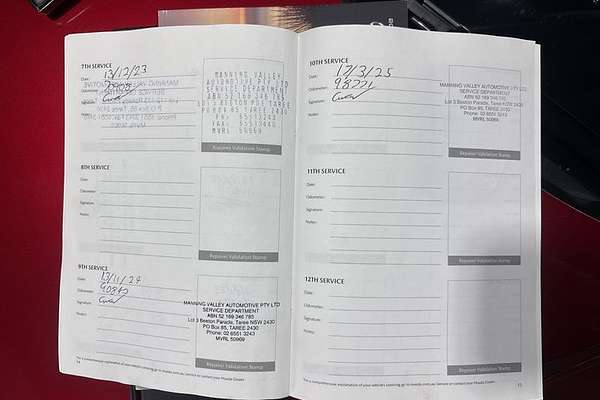 7TH SERVICE
Date: 13/12/23
Odometer:
Signature:
Notes:
MANNING VALLEY
AUTOMOTIVE PTY LTD
SERVICE DEPARTMENT
ABN 52 169 346 785
LOT 3 BEETON PDE TAREE
PO BOX 85 TAREE 2430
PH. 65513243
MVRL 50969
Repairer Validation Stamp
8TH SERVICE
Date:
Odometer:
Signature:
Notes:
Repairer Validation Stamp
9TH SERVICE
Date: 13/11/24
Odometer:
Signature:
Notes:
MANNING VALLEY AUTOMOTIVE PTY LTD
SERVICE DEPARTMENT
ABN 52 169 346 785
Lot 3 Beeton Parade, Taree NSW 2430
PO Box 85, TAREE 2430
Phone: 02 6551 3243
MVRL 50969
Repairer Validation Stamp
10TH SERVICE
Date: 17/3/25
Odometer: 98221
Signature:
Notes:
MANNING VALLEY AUTOMOTIVE PTY LTD
SERVICE DEPARTMENT
ABN 52 169 346 785
Lot 3 Beeton Parade, Taree NSW 2430
PO Box 85, TAREE 2430
Phone: 02 6551 3243
MVRL 50969
Repairer Validation Stamp
11TH SERVICE
Date:
Odometer:
Signature:
Notes:
Repairer Validation Stamp
12TH SERVICE
Date:
Odometer:
Signature:
Notes:
Repairer Validation Stamp